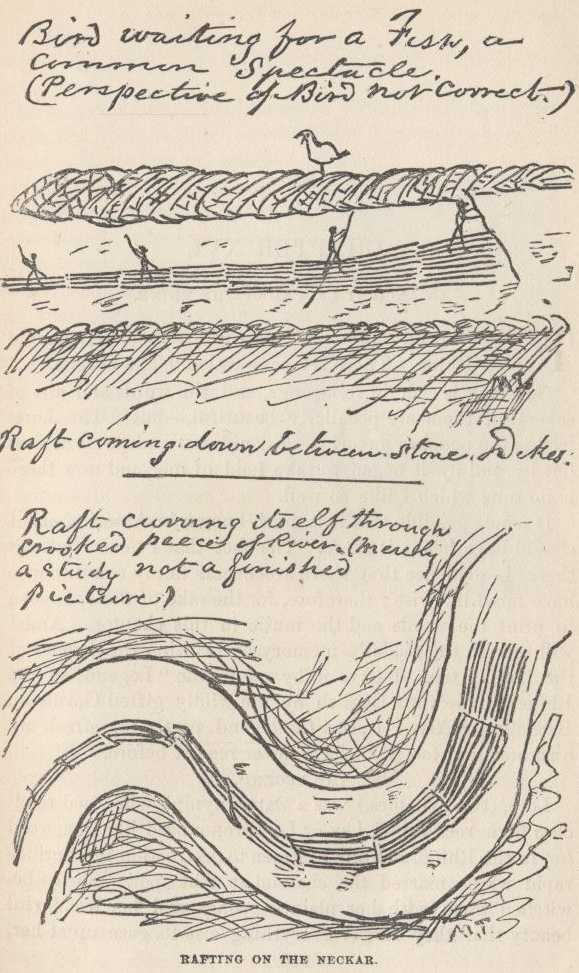 Bird waiting for a Fish, a
common Spectacle.
(Perspective of Bird not Correct.)
M.T.
Raft coming down between Stone Dikes.
Raft curving itself through
crooked peece of River. (Merely
a Study not a finished
picture)
M.T.
RAFTING ON THE NECKAR.